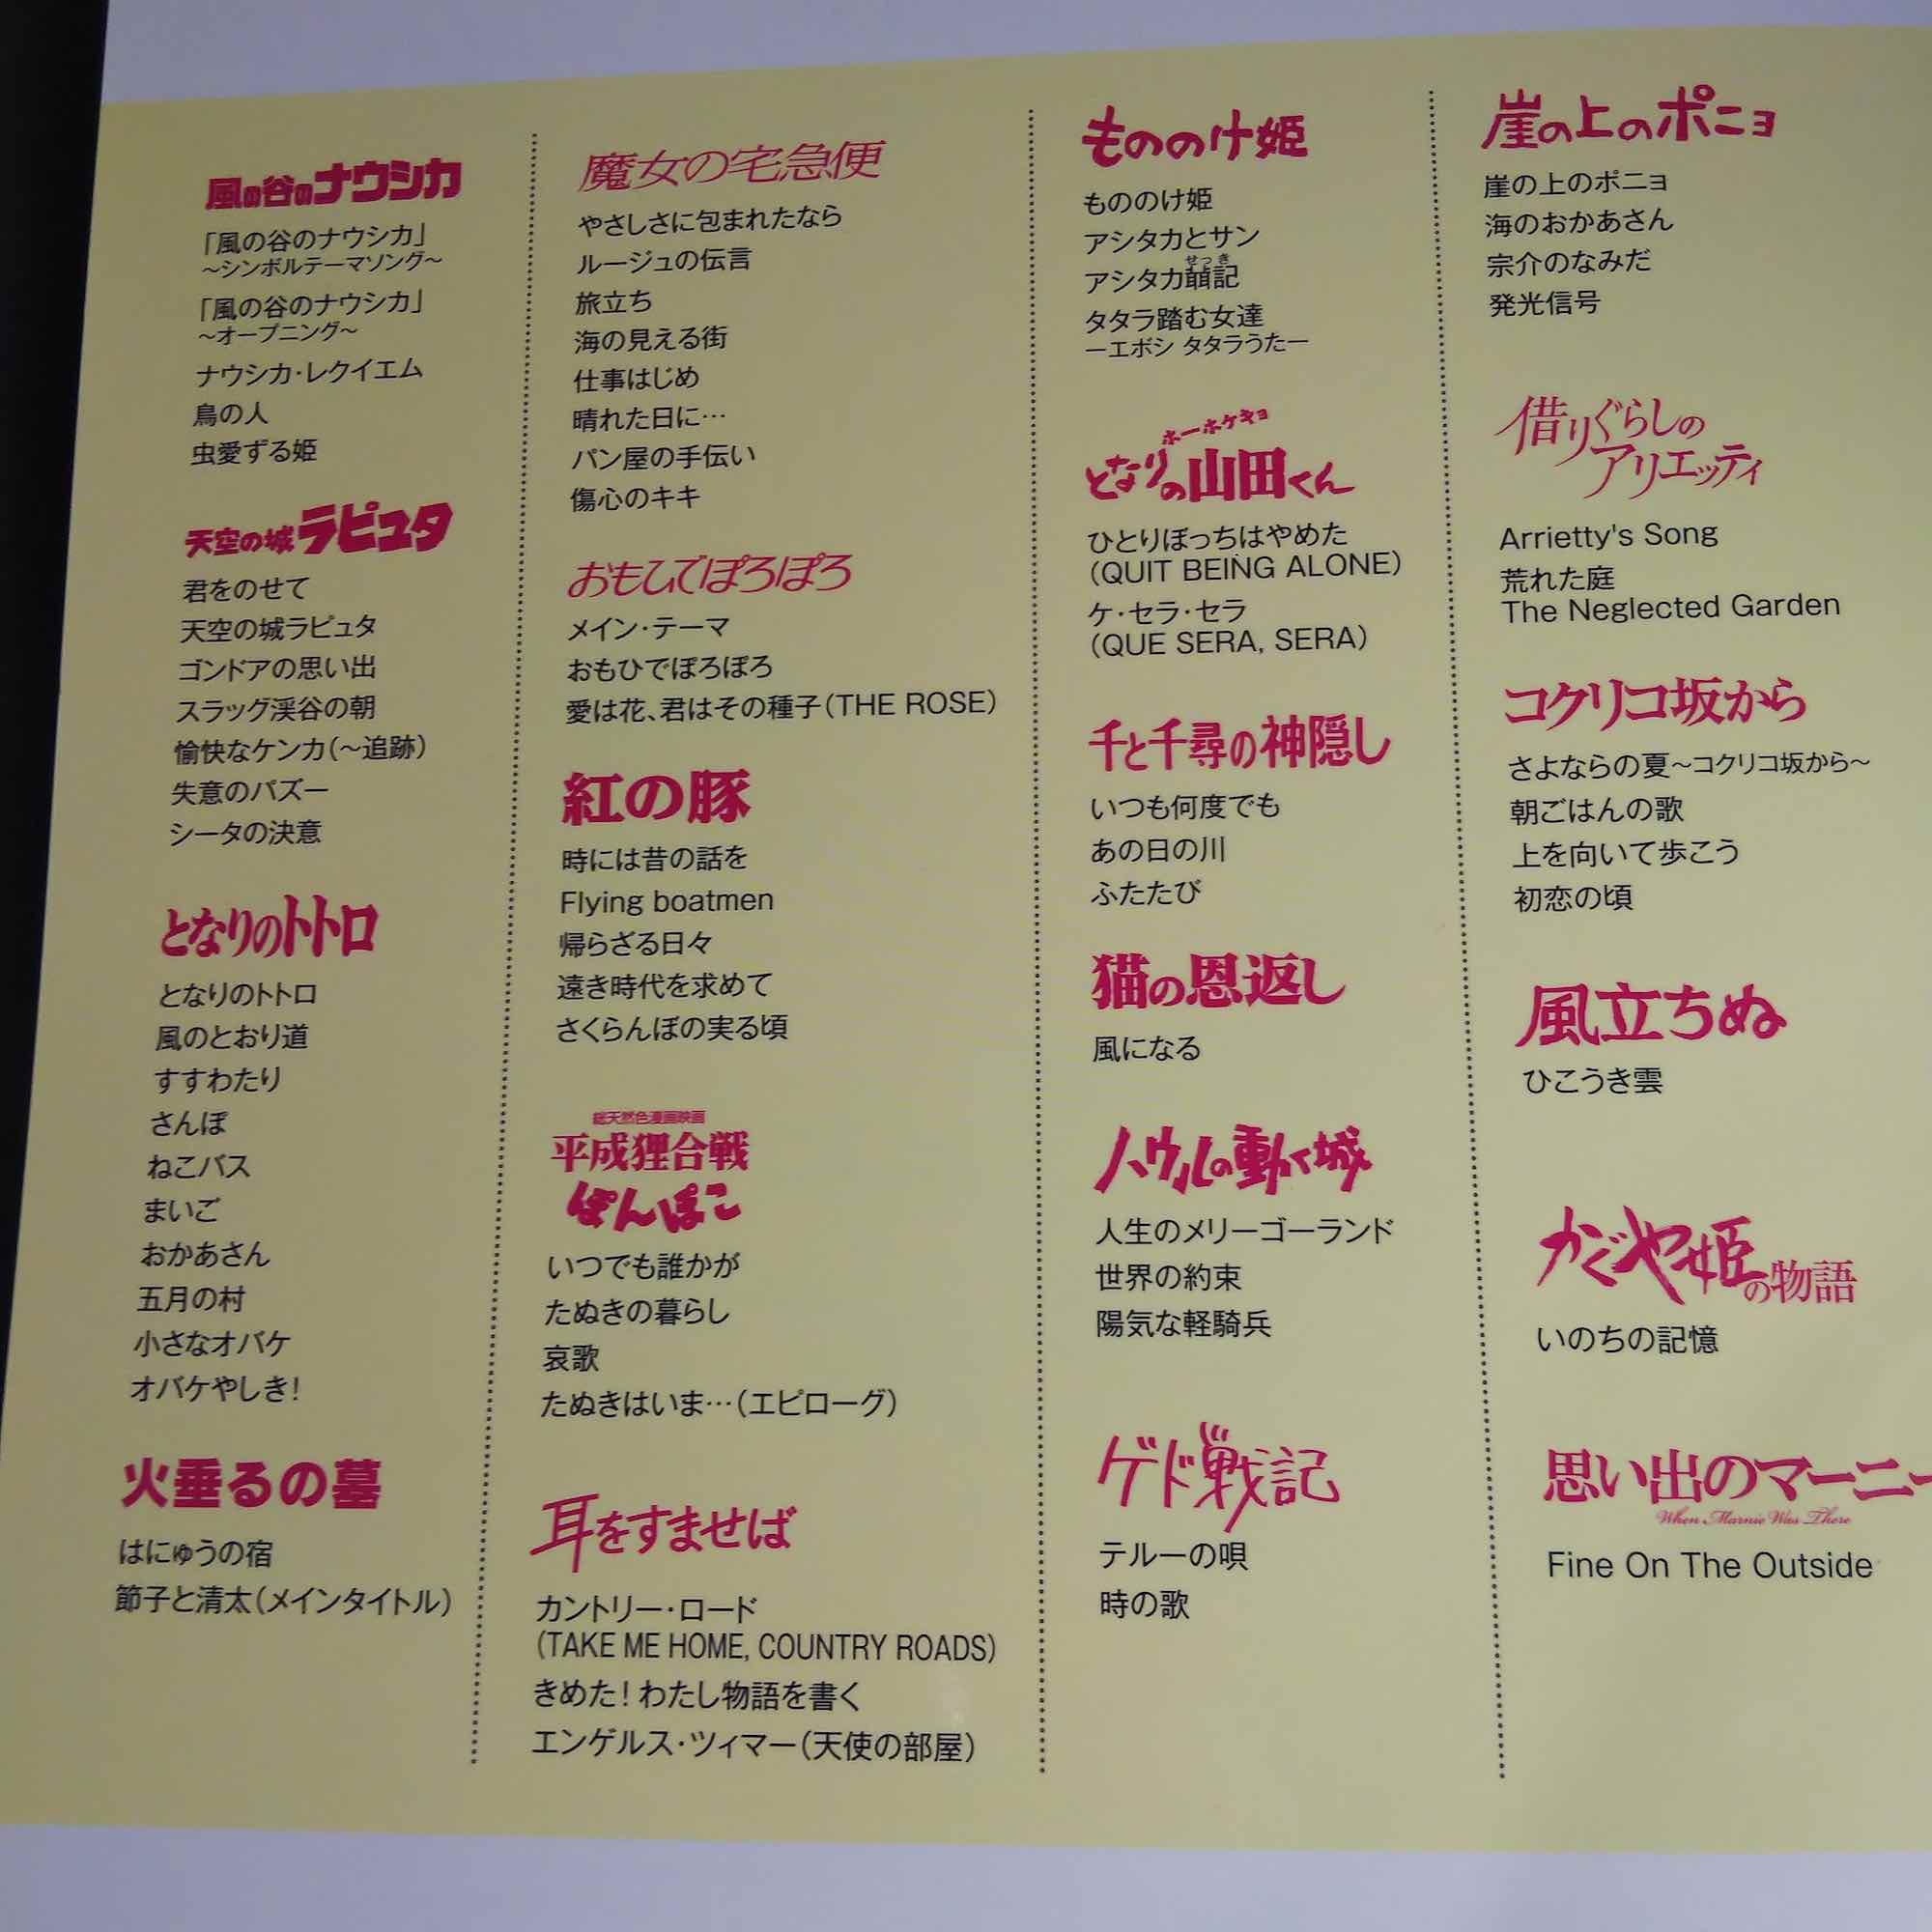 風の谷のナウシカ
「風の谷のナウシカ」
〜シンボルテーマソング〜
「風の谷のナウシカ」
〜オープニング〜
ナウシカ・レクイエム
鳥の人
虫愛ずる姫
天空の城ラピュタ
君をのせて
天空の城ラピュタ
ゴンドアの思い出
スラッグ渓谷の朝
愉快なケンカ(〜追跡)
失意のパズー
シータの決意
となりのトトロ
となりのトトロ
風のとおり道
すすわたり
さんぽ
ねこバス
まいご
おかあさん
五月の村
小さなオバケ
オバケやしき!
火垂るの墓
はにゅうの宿
節子と清太(メインタイトル)
魔女の宅急便
やさしさに包まれたなら
ルージュの伝言
旅立ち
海の見える街
仕事はじめ
晴れた日に…
パン屋の手伝い
傷心のキキ
おもひでぽろぽろ
メイン・テーマ
おもひでぽろぽろ
愛は花、君はその種子(THE ROSE)
紅の豚
時には昔の話を
Flying boatmen
帰らざる日々
遠き時代を求めて
さくらんぼの実る頃
総天然色漫画映画
平成狸合戦
ぽんぽこ
いつでも誰かが
たぬきの暮らし
哀歌
たぬきはいま…(エピローグ)
耳をすませば
カントリー・ロード
(TAKE ME HOME, COUNTRY ROADS)
きめた! わたし物語を書く
エンゲルス・ツィマー(天使の部屋)
もののけ姫
もののけ姫
アシタカとサン
せっき
アシタカ𦻙記
タタラ踏む女達
ーエボシ タタラうたー
ホーホケキョ
となりの山田くん
ひとりぼっちはやめた
(QUIT BEING ALONE)
ケ・セラ・セラ
(QUE SERA, SERA)
千と千尋の神隠し
いつも何度でも
あの日の川
ふたたび
猫の恩返し
風になる
ハウルの動く城
人生のメリーゴーランド
世界の約束
陽気な軽騎兵
ゲド戦記
テルーの唄
時の歌
崖の上のポニョ
崖の上のポニョ
海のおかあさん
宗介のなみだ
発光信号
借りぐらしの
アリエッティ
Arrietty's Song
荒れた庭
The Neglected Garden
コクリコ坂から
さよならの夏〜コクリコ坂から〜
朝ごはんの歌
上を向いて歩こう
初恋の頃
風立ちぬ
ひこうき雲
かぐや姫の物語
いのちの記憶
思い出のマーニー
When Marnie Was There
Fine On The Outside